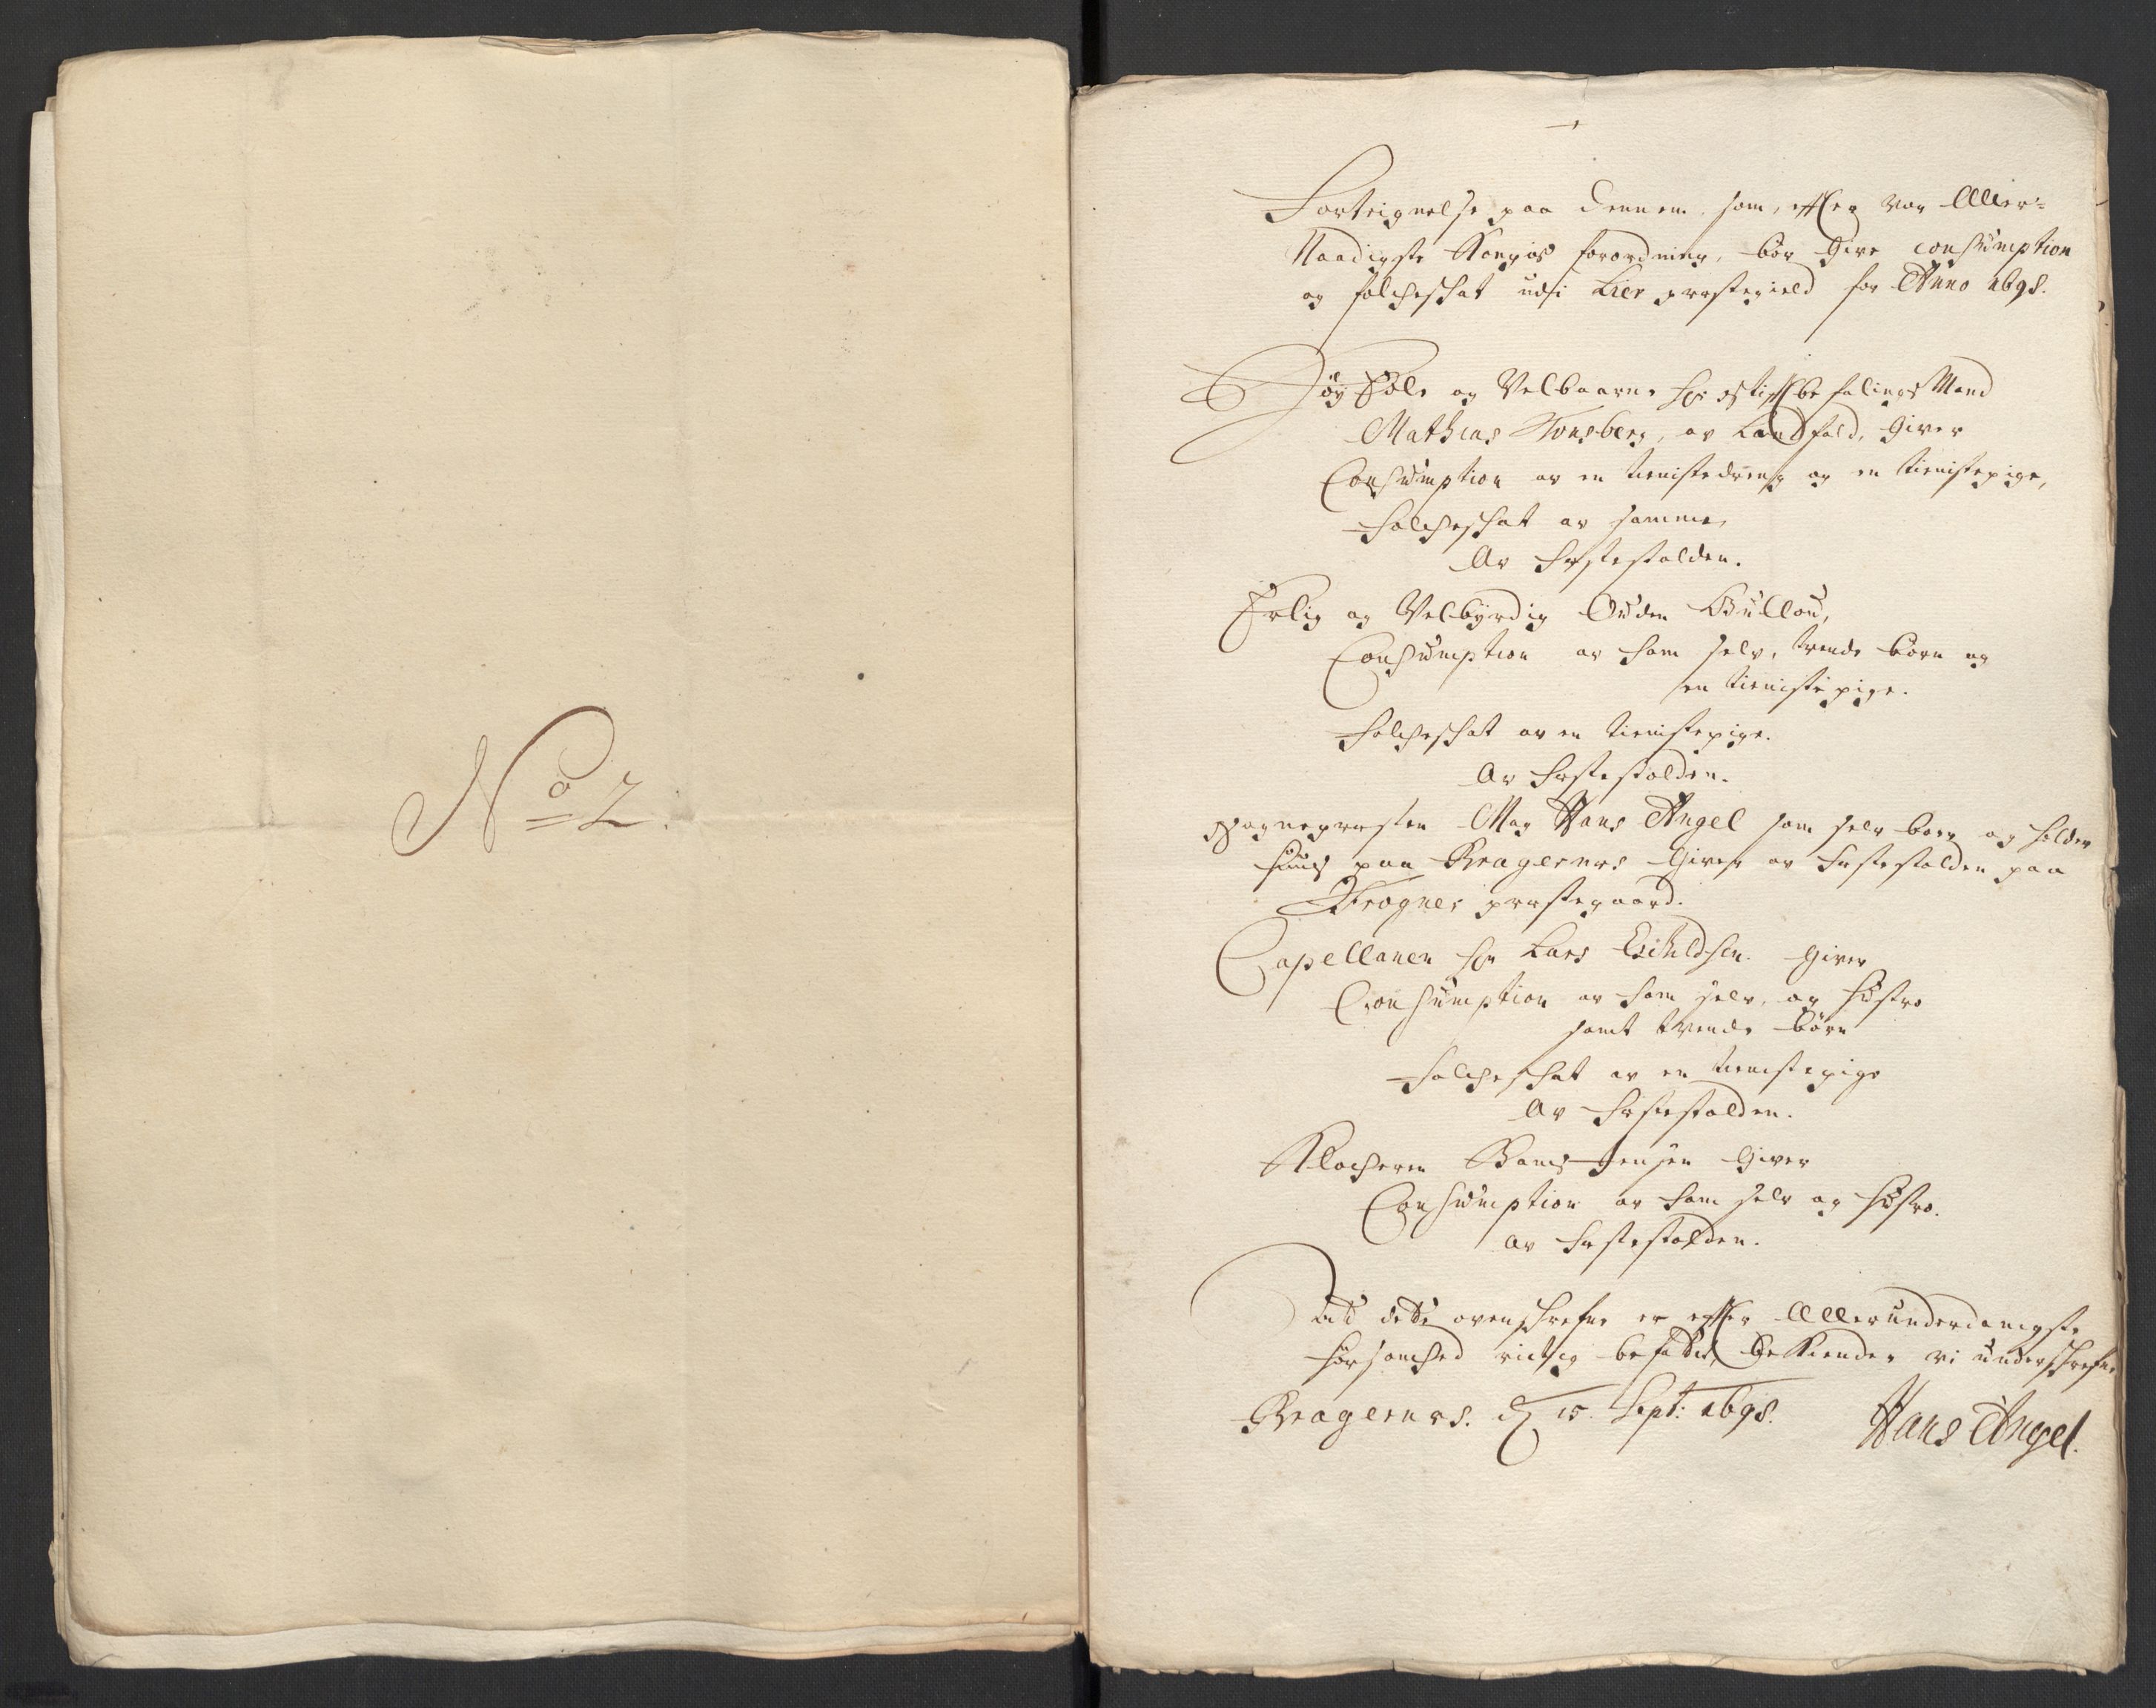 No 2.
Forteignelse paa dennem, som, effter vor Aller-
Naadigste Konges forordning, bør Give consumption
og folcheschat udi Lier præstegield for Anno 1698.
Høy Edle og Velbaarne Hr Stifftbefalings Mand
Mathias Tonsberg, av Landfald, Giver
Consumption av en tienistedreng og en tienistepige,
Folcheschat av samme,
Av Hæsteskolden.
Erlig og Velbyrdig Ouden Bullou,
Consumption av ham selv, trende börn og
en tienistepige.
Folcheschat av en tienistepige.
Av Hæsteskolden.
Sognepræsten Mag Hans Angel som selv boer og holder
huus paa Bragernes Giver av Hæsteskolden paa
Frogner præstegaard.
Capellanen Hr Lars Eschildsen Giver
Consumption av ham selv, og hustro
samt trende börn
Folcheschat av en tienistepige
Av Hæsteskolden.
Klocheren Jensen Giver
Consumption av ham selv og hustro.
av Hæsteskolden.
At dette ovenschrefne er effter Allerunderdanigste
hörsomhed rictig befattet, bekiender vi underschrefne
Bragernes. d 15. Sept: 1698. Hans Angel.